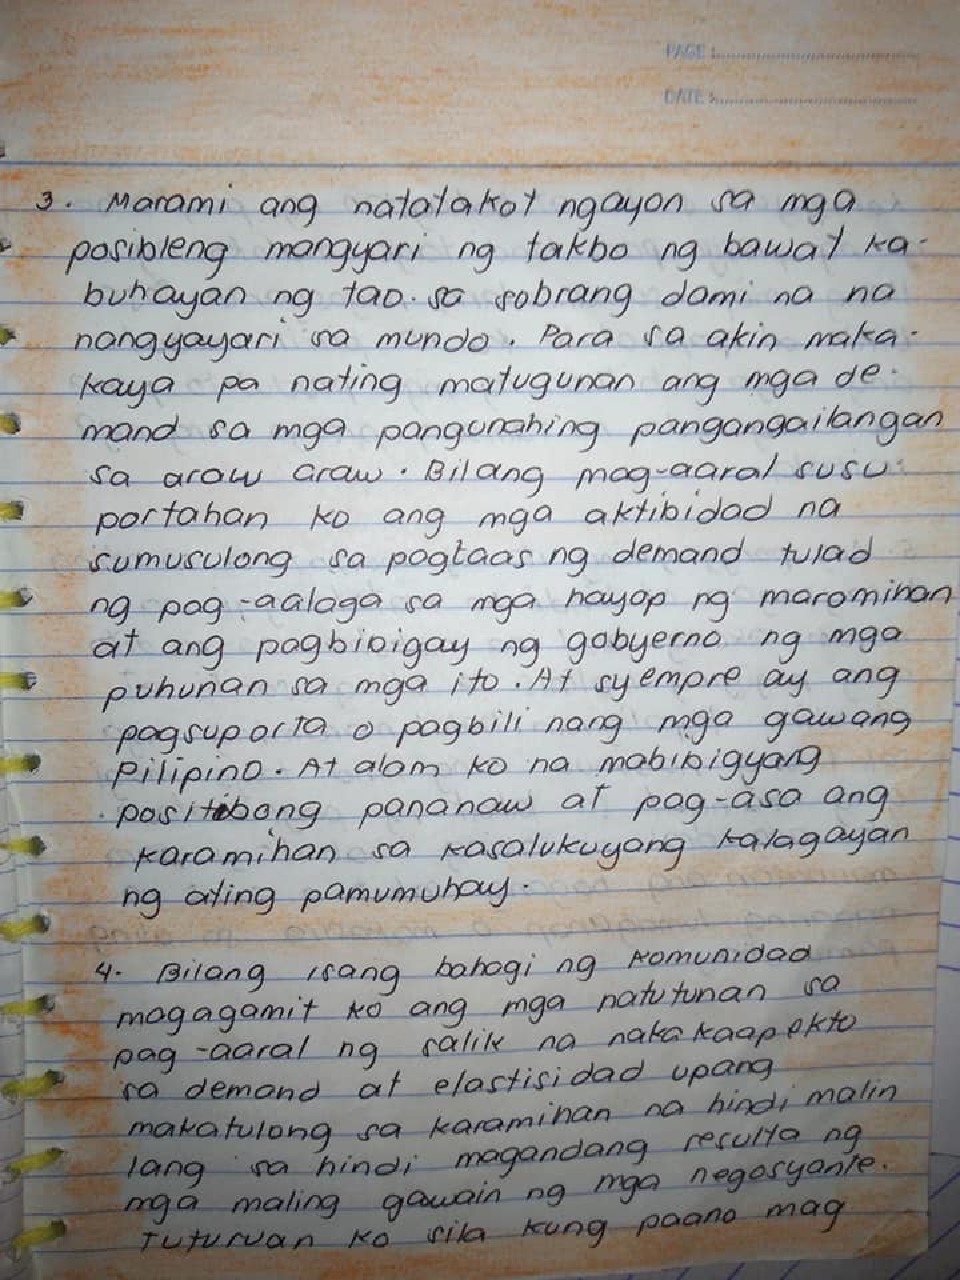 PAGE :
DATE :
3. Marami ang natatakot ngayon sa mga
posibleng mangyari ng takbo ng bawat ka-
buhayan ng tao. sa sobrang dami na na
nangyayari sa mundo. Para sa akin maka-
kaya pa nating matugunan ang mga de-
mand sa mga pangunahing pangangailangan
sa araw araw. Bilang mag-aaral susu-
portahan ko ang mga aktibidad na
sumusulong sa pagtaas ng demand tulad
ng pag-aalaga sa mga hayop ng maromihan
at ang pagbibigay ng gobyerno ng mga
puhunan sa mga ito. At syempre ay ang
pagsuporta o pagbili nang mga gawang
Pilipino. At alam ko na mabibigyang
positibong pananaw at pag-asa ang
karamihan sa kasalukuyang kalagayan
ng ating pamumuhay.
4. Bilang isang bahagi ng komunidad
magagamit ko ang mga natutunan sa
pag-aaral ng salik na nakakaapekto
sa demand at elastisidad upang
makatulong sa karamihan na hindi malin
lang sa hindi magandang resulta ng
mga maling gawain ng mga negosyante.
Tuturuan ko sila kung paano mag